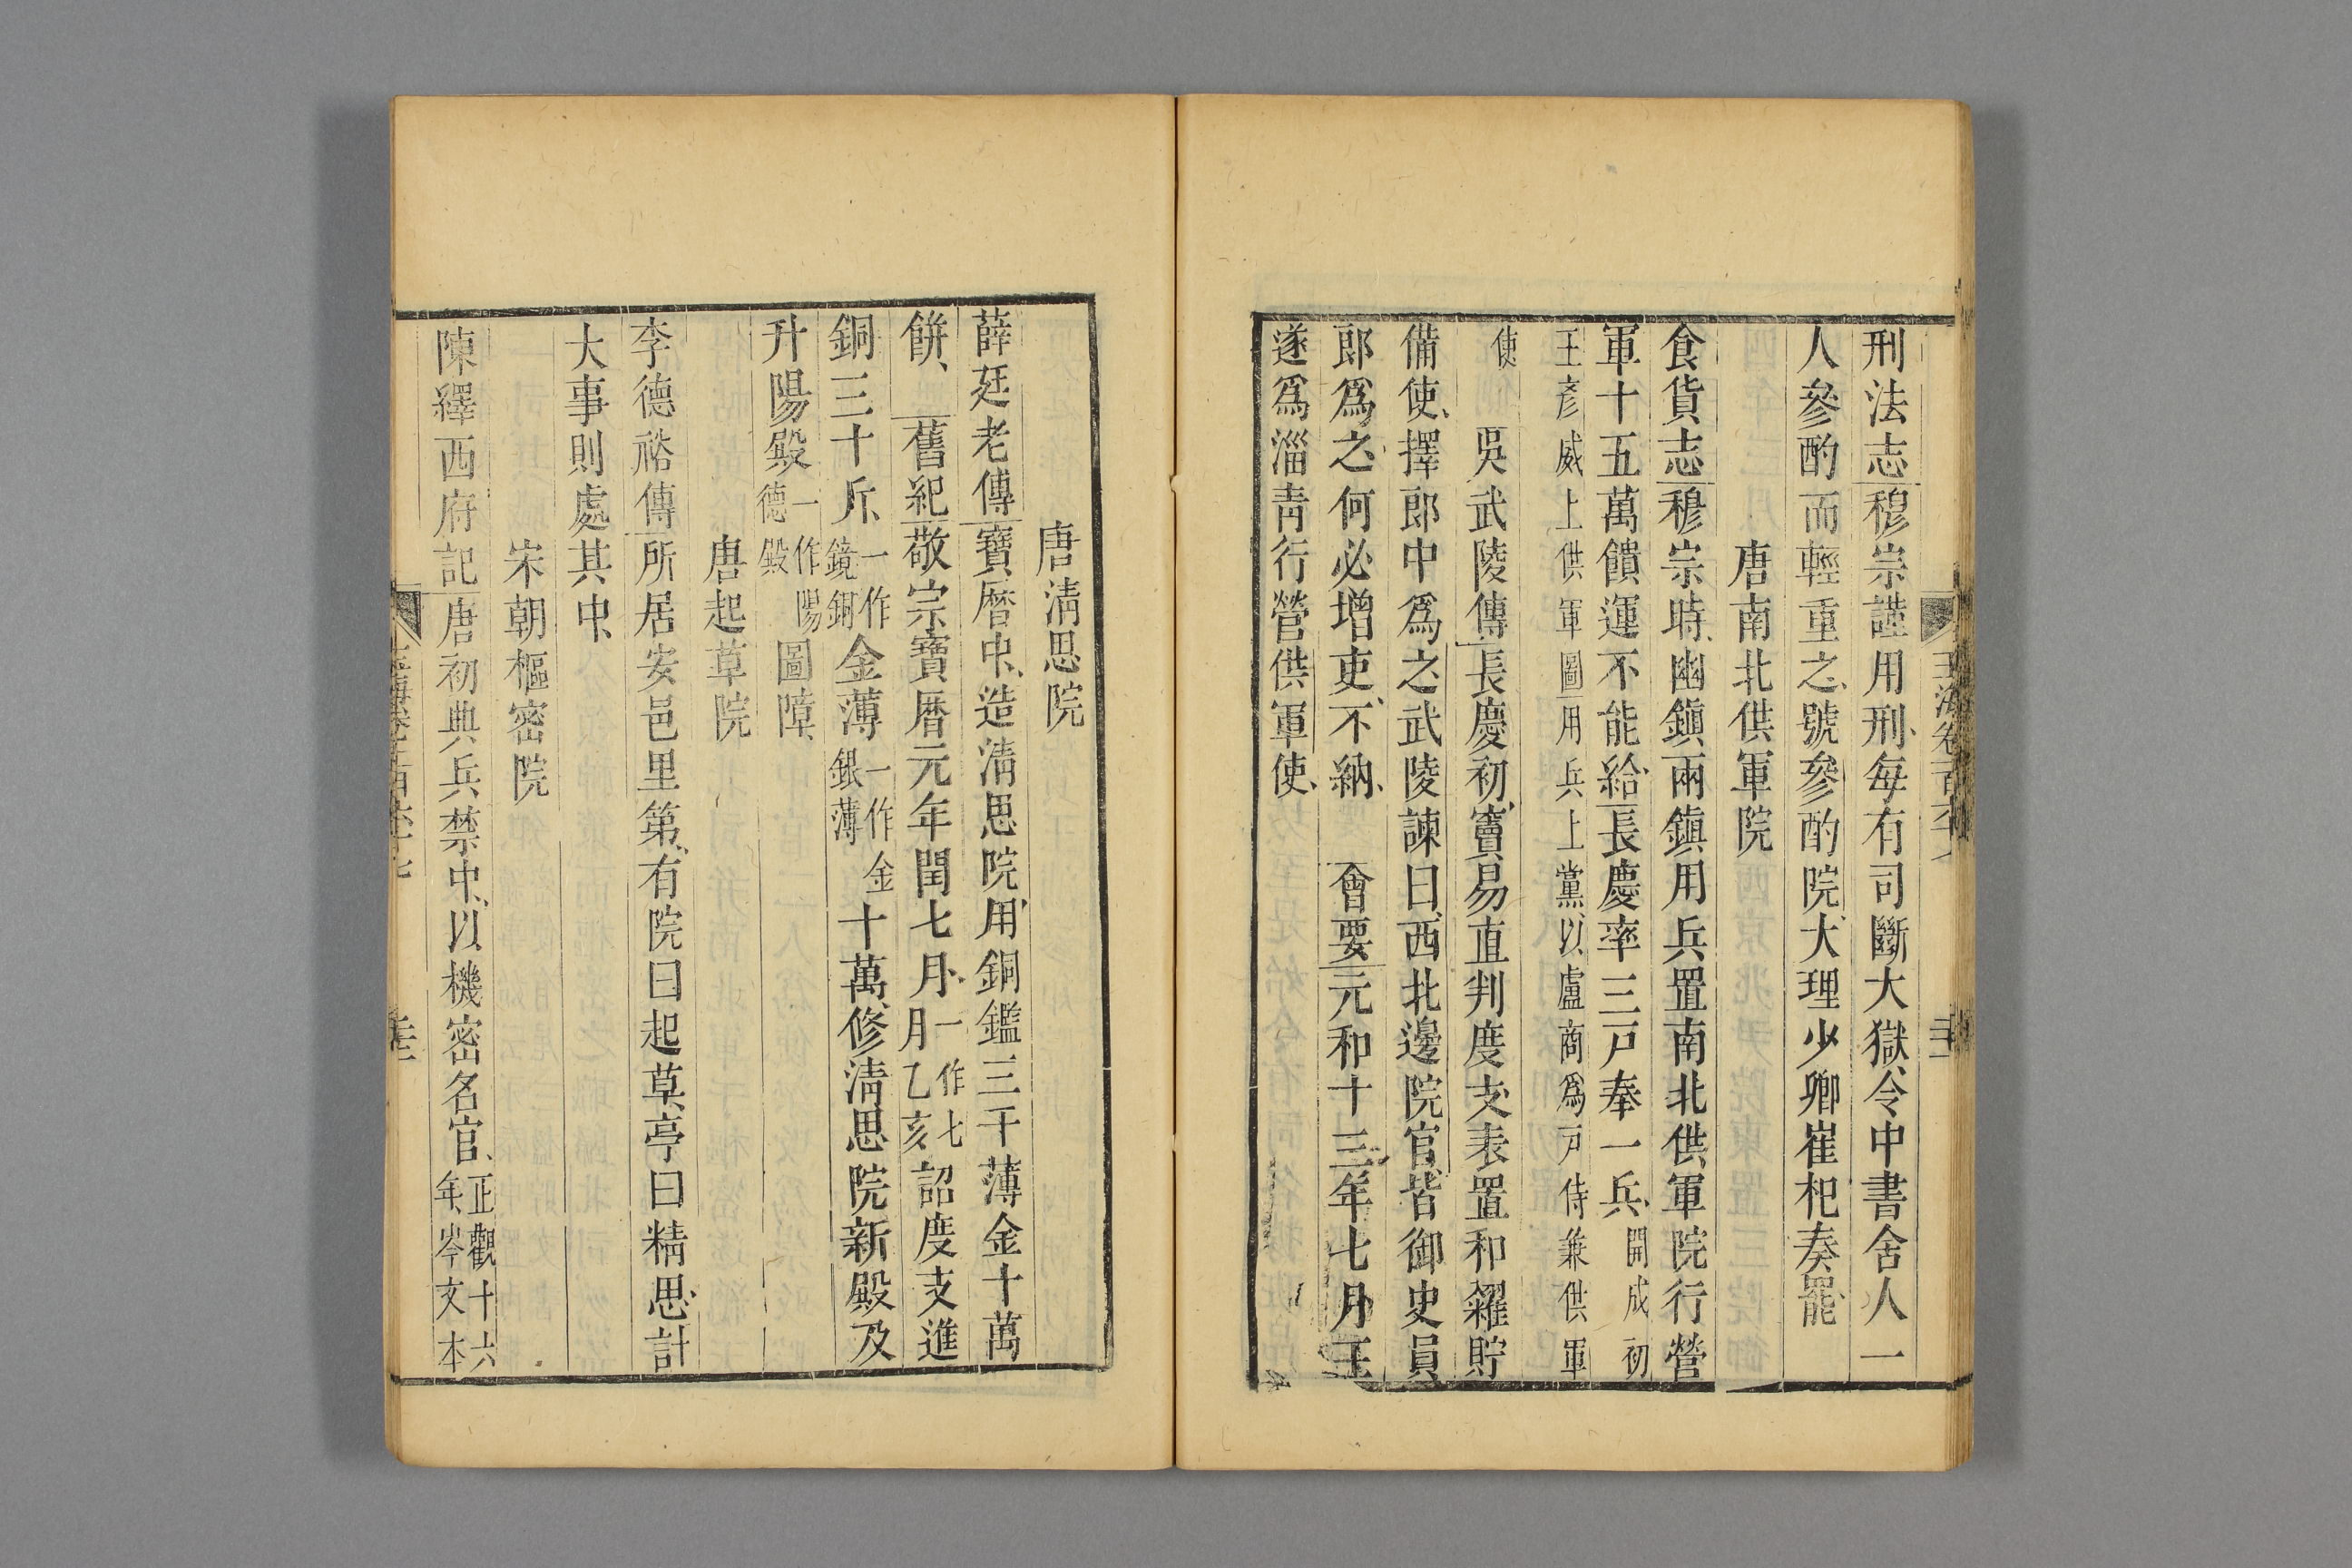 刑法志穆宗謹用刑每有司斷大獄令中書舍人一
人參酌而輕重之號參酌院大理少卿崔杞奏罷
唐南北供軍院
食貨志穆宗時幽鎮兩鎮用兵置南北供軍院行營
軍十五萬饋運不能給長慶率三戶奉一兵開成初
王彥威上供軍圖用兵上黨以盧商爲戶侍兼供軍
使 吳武陵傳長慶初竇易直判度支表置和糴貯
備使擇郎中爲之武陵諫曰西北邊院官皆御史員
郎爲之何必增吏不納 會要元和十三年七月王
遂爲淄青行營供軍使
唐淸思院
薛廷老傳寶曆中造淸思院用銅鑑三千薄金十萬
餅 舊紀敬宗寶曆元年閏七月一作七月乙亥詔度支進
銅三十斤一作鏡銅金薄一作金銀薄十萬修淸思院新殿及
升陽殿一作陽德殿圖障
唐起草院
李德裕傳所居安邑里第有院曰起草亭曰精思計
大事則處其中
宋朝樞密院
陳繹西府記唐初典兵禁中以機密名官正觀十六年岑文本